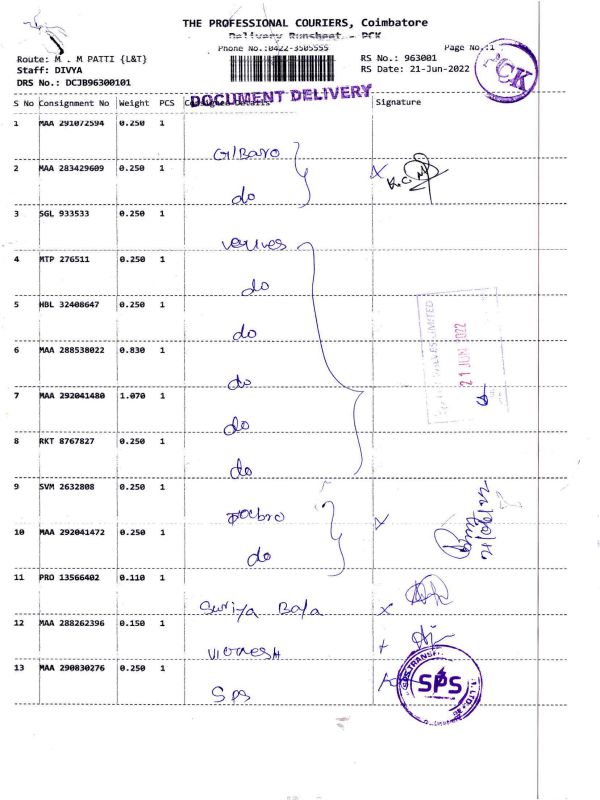 THE PROFESSIONAL COURIERS, Coimbatore
Delivery Runsheet - PCK
Phone No.:0422-3505555 Page No.:1
Route: M . M PATTI {L&T} RS No.: 963001
Staff: DIVYA RS Date: 21-Jun-2022
DRS No.: DCJB96300101
PCK
DOCUMENT DELIVERY
S No Consignment No Weight PCS Consignee Details Signature
1 MAA 291072594 0.250 1
2 MAA 283429609 0.250 1 do
3 SGL 933533 0.250 1
4 MTP 276511 0.250 1 do
5 HBL 32408647 0.250 1 do
6 MAA 288538022 0.830 1 do
7 MAA 292041480 1.070 1 do
8 RKT 8767827 0.250 1 do
21 JUN 2022
9 SVM 2632808 0.250 1
21/06/22
10 MAA 292041472 0.250 1 do
11 PRO 13566402 0.110 1 Suriya Bala
12 MAA 288262396 0.150 1 VIGNESH
13 MAA 290830276 0.250 1 SPS
SPS